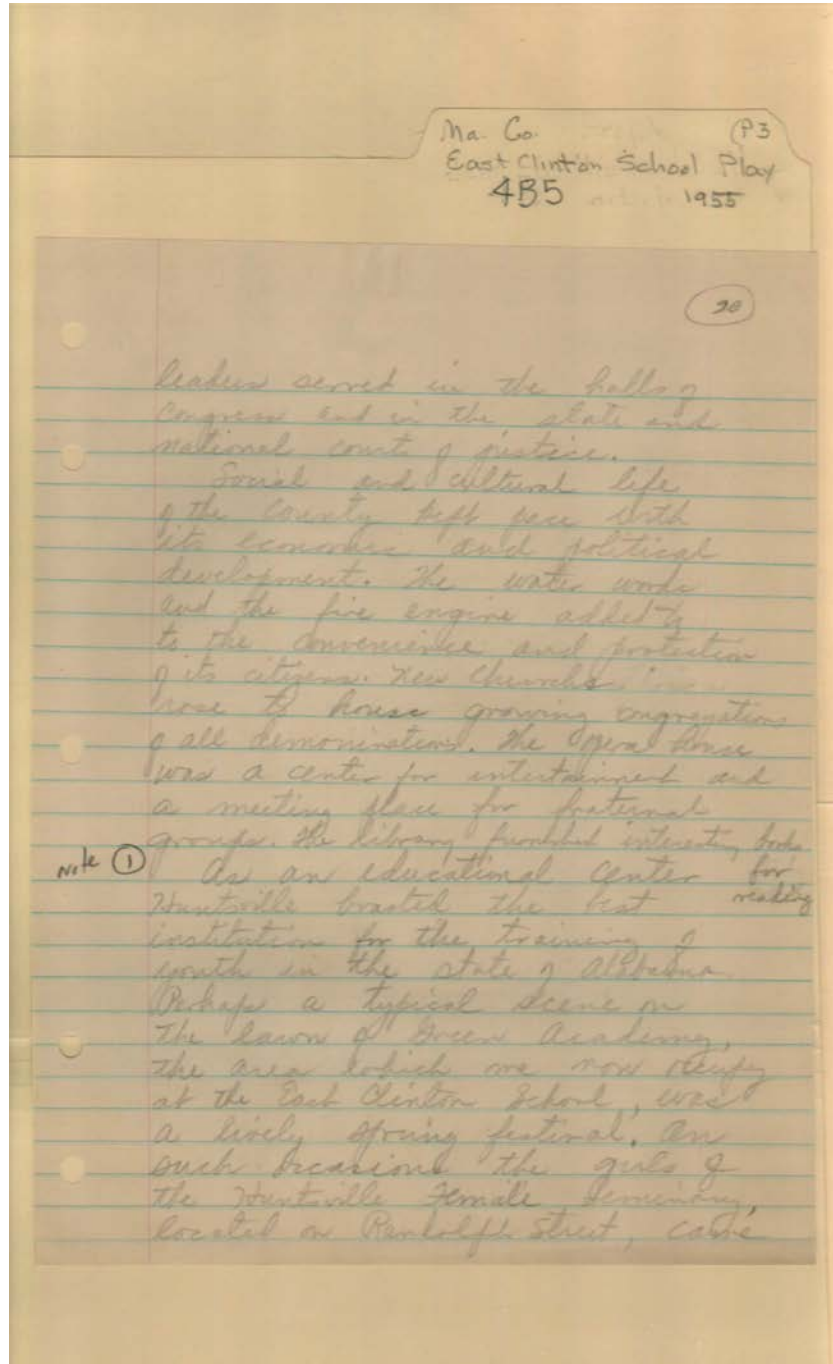 Ma. Co. P3
East Clinton School Play
4B5 1955
20
leaders served in the halls of
Congress and in the state and
national court of justice.
Social and cultural life
of the County kept pace with
its economic and political
development. The water works
and the fire engine added
to the convenience and protection
of its citizens. New Churchs
rose to house growing congregations
of all demoninations. The opera house
was a center for entertainment and
a meeting place for fraternal
groups. The library furnished interesting books
for
reading
Note 1
As an educational center
Huntsville boasted the best
institution for the training of
youth in the state of Alabama.
Perhaps a typical scene on
The lawn of Green Academy,
the area which we now occupy
at the East Clinton School, was
a lively spring festival. On
such occasions the girls of
the Huntsville Female Seminary,
located on Randolph Street, came